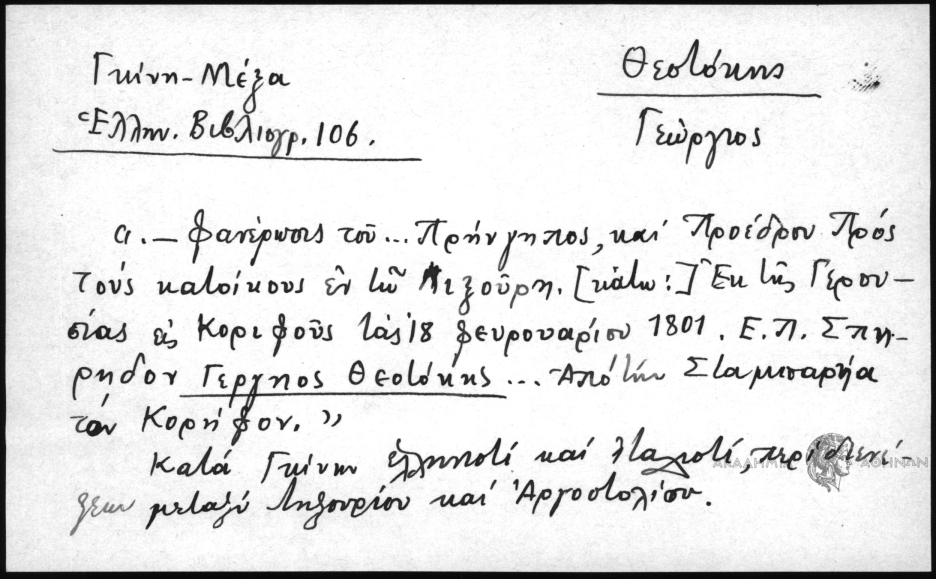 Γκίνη-Μέξα
Ἑλλην. Βιβλιογρ. 106.
Θεοτόκης
Γεώργιος
α. – Φανέρωσις τοῦ... Πρήνγηπος, καί Προέδρου Πρός
τούς κατοίκους ἐν τῶ Ληξοῦρη. [κάτω:] Ἐκ τῆς Γερου-
σίας εἰς Κοριφοῦς τάς 18 φευρουαρίου 1801. Ε.Π. Σπη-
ρηδον Γεργηος Θεοτόκης ... Ἀπό τήν Σταμπαρήα
τον Κορήφον."
Κατά Γκίνην ἑλληνιστί καί ἰταλιστί, περί διενέ-
ξεων μεταξύ Ληξουρίου καί Ἀργοστολίου.
ΑΚΑΔΗΜΙΑ ΑΘΗΝΩΝ